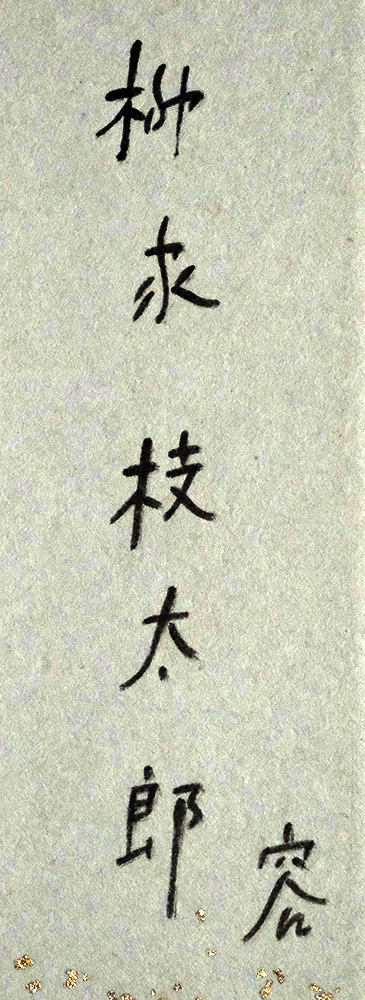 柳求 枝太郎
容